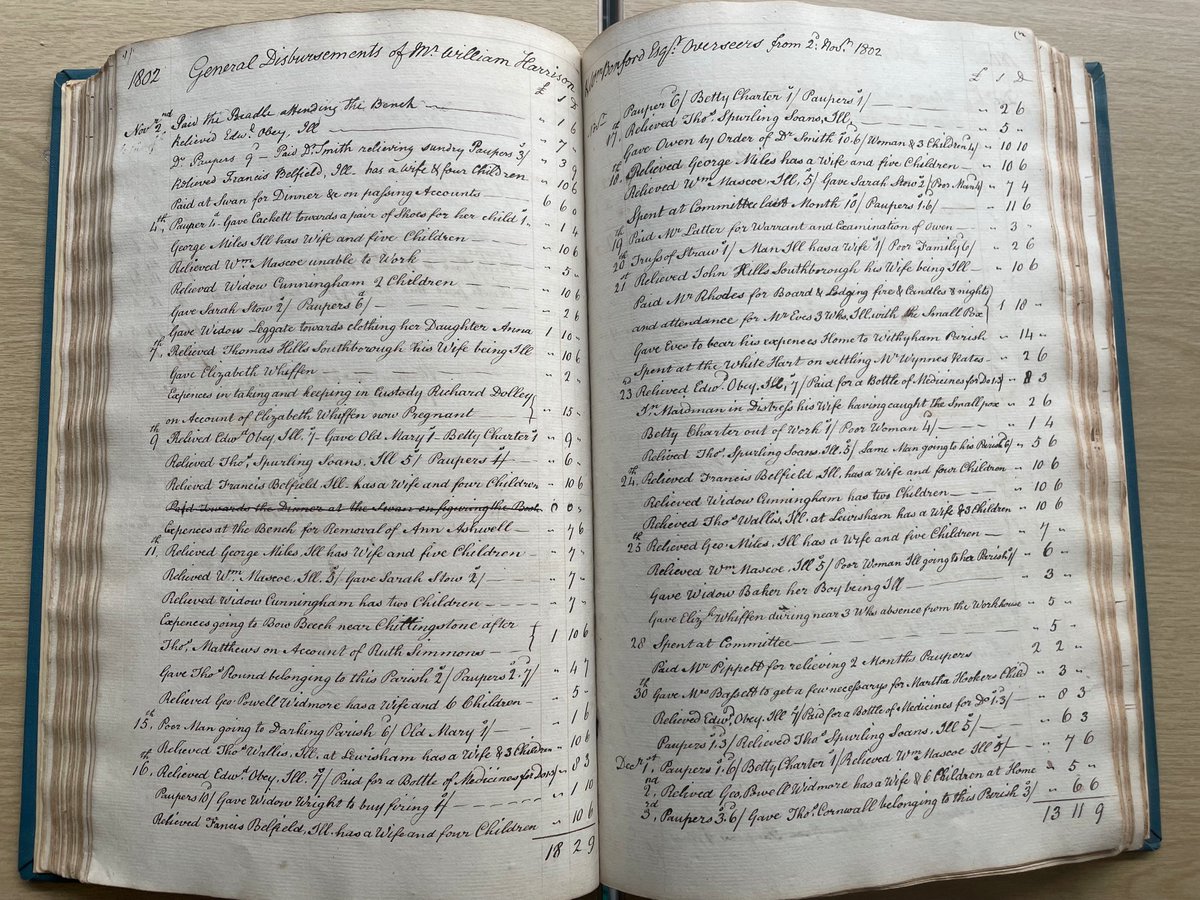 1802 General Disbursements of Mr William Harrison
£ s d
Novr 2nd Paid the Beadle attending the Bench — " 1 6
Relieved Edwd Obey, Ill — " 7 "
Do Paupers 9d — Paid Dr Smith relieving sundry Paupers 3/ " 3 9
Relieved Francis Belfield, Ill — has a Wife & four Children " 10 6
Paid at Swan for Dinner &c on passing Accounts — 6 6 0
4th Pauper 4d Gave Cackett towards a pair of Shoes for her child 1s " 1 4
George Miles Ill has Wife and five Children — " 10 6
Relieved Wm Mascoe unable to Work — " 5 "
Relieved Widow Cunningham 2 Children — " 10 6
Gave Sarah Stow 2/ Paupers 6d/ — " 2 6
Gave Widow Leggate towards clothing her Daughter Anna 1 10 "
7th Relieved Thomas Hills Southborough his Wife being Ill " 10 6
Gave Elizabeth Whiffen — " 2 "
Expences in taking and keeping in Custody Richard Dolley
on Account of Elizabeth Whiffen now Pregnant " 15 "
9th Relived Edwd Obey, Ill. 7/ — Gave Old Mary 1s — Betty Charter 1s " 9 "
Relieved Thos Spurling Soans, Ill 5/ Paupers 1/ — " 6 "
Relieved Francis Belfield, Ill — has a Wife and four Children " 10 6
Paid towards the Dinner at the Swan on
Expences at the Bench for Removal of Ann Ashwell — " 7 6
11th Relieved George Miles, Ill has Wife and five Children — " 7 "
Relieved Wm Mascoe, Ill. 5/ Gave Sarah Stow 2/ — " 7 "
Relieved Widow Cunningham has two Children — " 7 "
Expences going to Bow Beech near Chittingstone after
Thos Matthews on Account of Ruth Simmons — 1 10 6
Gave Thos Round belonging to this Parish 2/ Paupers 2s.7d/ " 4 7
Relieved Geo. Powell Widmore has a Wife and 6 Children — " 5 "
15th Poor Man going to Darking Parish 6d/ Old Mary 1/ — " 1 6
Relieved Thos Wallis, Ill. at Lewisham has a Wife & 3 Children " 10 6
16th Relieved Edwd Obey, Ill. 7/ Paid for a Bottle of Medicines for Do 1s3 " 8 3
Paupers 10d/ Gave Widow Wright to buy firing 1/ — " 1 10
Relieved Fancis Belfield, Ill. has a Wife and four Children " 10 6
18 2 9
& Wm Bonford Esqr Overseers from 2d Novr 1802
£ s d
Pauper 6d/ Betty Charter 1s/ Paupers 1s/ — " 2 6
17th Relieved Thos Spurling Soans, Ill — " 5 "
Gave Owen by Order of Dr Smith 10.6/ Woman & 3 Children 4d — " 10 10
18th Relieved George Miles has a Wife and five Children — " 10 6
Relieved Wm Mascoe, Ill 5/ Gave Sarah Stow 2/ Poor Man 4d — " 7 4
Spent at Committee last Month 10/ Paupers 1s.6/ — " 11 6
19th Paid Mr Latter for Warrant and Examination of Owen — " 3 "
20th Truss of Straw 1s/ Man Ill has a Wife 1s/ Poor Family 6d/ " 2 6
21st Relieved John Hills Southborough his Wife being Ill — " 10 6
Paid Mr Rhodes for Board & Lodging fire & Candles & nights
and attendance for Mr Eves 3 Wks, Ill, with the Small Pox 1 18 "
Gave Eves to bear his expences Home to Withyham Parish " 14 "
Spent at the White Hart on settling Mr Wynnes Rates — " 2 6
23d Relieved Edwd Obey, Ill. 7/ Paid for a Bottle of Medicines for Do 1s3 " 8 3
Jn Maidman in Distress his Wife having caught the Small pox " 2 6
Betty Charter out of Work 1s/ Poor Woman 4d/ — " 1 4
Relived Thos Spurling Soans, Ill. 5/ Same Man going to his Parish 6d/ " 5 6
24th Relieved Francis Belfield, Ill, has a Wife and four Children " 10 6
Relieved Widow Cunningham has two Children — " 10 6
Relieved Thos Wallis, Ill. at Lewisham has a Wife & 3 Children " 10 6
25th Relieved Geo. Miles, Ill has a Wife and five Children — " 7 "
Relieved Wm Mascoe, Ill 5/ Poor Woman Ill going to her Parish 1s/ " 6 "
Gave Widow Baker her Boy being Ill — " 3 "
Gave Elizh Whiffen during near 3 Wks absence from the Workhouse " 5 "
28 Spent at Committee — " 5 "
Paid Mr Peppett for relieving 2 Months Paupers 2 2 "
30th Gave Mrs Bassett to get a few necessarys for Martha Hookers Child " 3 "
Relieved Edwd Obey, Ill 7/ Paid for a Bottle of Medicines for Do 1s.3/ " 8 3
Paupers 1s.3/ Relieved Thos Spurling Soans, Ill 5/ — " 6 3
Decr 1st Paupers 1s.6d/ Betty Charter 1s/ Relieved Wm Mascoe Ill 5/ — " 7 6
2nd Relived Geo. Powell Widmore has a Wife & 6 Children at Home " 5 "
3rd Paupers 3s.6d/ Gave Thos Cornwall belonging to this Parish 3/ " 6 6
13 11 9